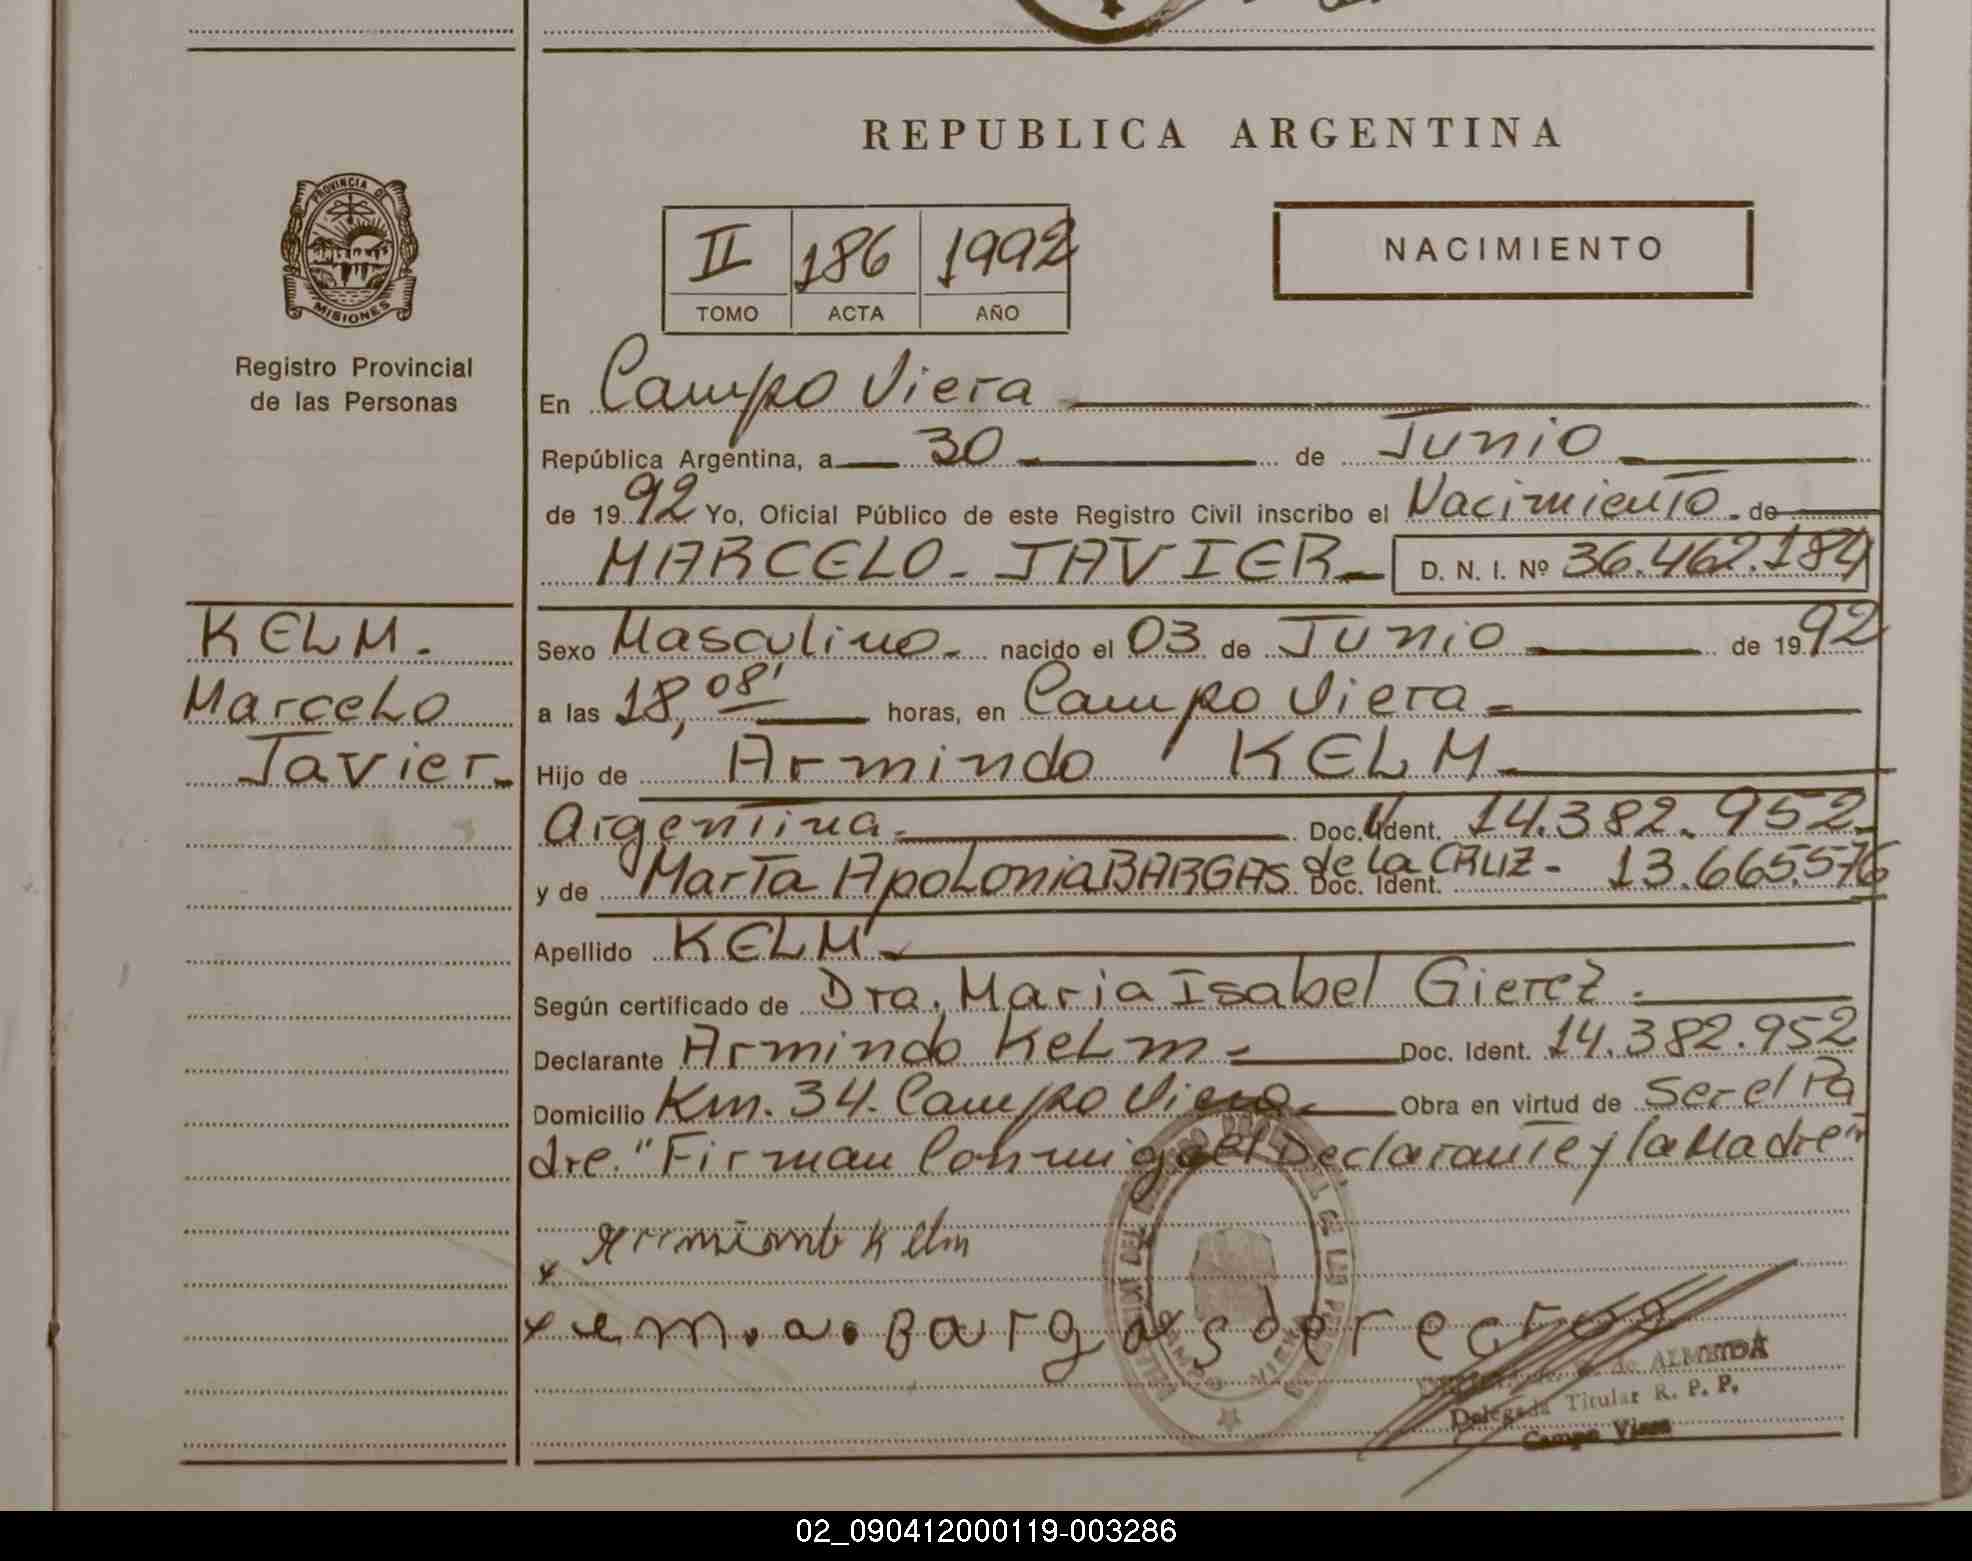 REPUBLICA ARGENTINA
PROVINCIA DE
MISIONES
Registro Provincial
de las Personas
II 186 1992
TOMO ACTA AÑO
NACIMIENTO
En Campo Viera
República Argentina, a 30 de Junio
de 1992 Yo, Oficial Público de este Registro Civil inscribo el Nacimiento de
MARCELO - JAVIER D. N. I. Nº 36.462.184
KELM.
Marcelo
Javier
Sexo Masculino nacido el 03 de Junio de 1992
a las 18,08' horas, en Campo Viera
Hijo de Armindo KELM
Argentina Doc. Ident. 14.382.952
y de Marta Apolonia BARGAS de la CRUZ - Doc. Ident. 13.665.576
Apellido KELM
Según certificado de Dra. Maria Isabel Gierez.
Declarante Armindo Kelm Doc. Ident. 14.382.952
Domicilio Km. 34. Campo Viera Obra en virtud de Ser el Pa
dre. "Firman Conmigo el Declarante y la Madre"
x Armindo Kelm
m. a. Bargas de
de ALMEIDA
Delegada Titular R. P. P.
Campo Viera
02_090412000119-003286